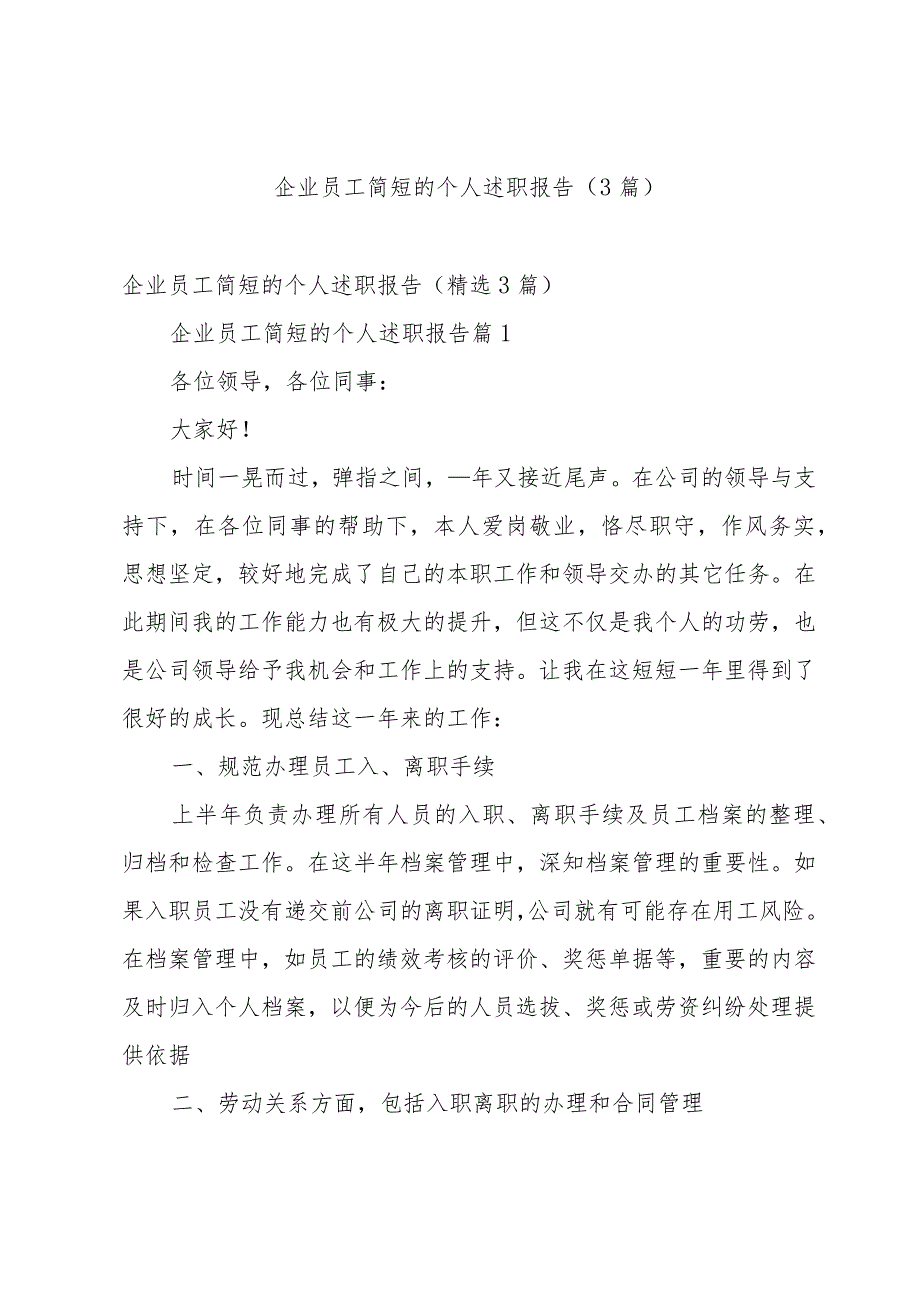 企业员工简短的个人述职报告（3 篇）
企业员工简短的个人述职报告（精选 3 篇）
企业员工简短的个人述职报告篇 1
各位领导，各位同事：
大家好！
时间一晃而过，弹指之间，—年又接近尾声。在公司的领导与支
持下，在各位同事的帮助下，本人爱岗敬业，恪尽职守，作风务实，
思想坚定，较好地完成了自己的本职工作和领导交办的其它任务。在
此期间我的工作能力也有极大的提升，但这不仅是我个人的功劳，也
是公司领导给予我机会和工作上的支持。让我在这短短一年里得到了
很好的成长。现总结这一年来的工作：
一、规范办理员工入、离职手续
上半年负责办理所有人员的入职、离职手续及员工档案的整理、
归档和检查工作。在这半年档案管理中，深知档案管理的重要性。如
果入职员工没有递交前公司的离职证明，公司就有可能存在用工风险。
在档案管理中，如员工的绩效考核的评价、奖惩单据等，重要的内容
及时归入个人档案，以便为今后的人员选拔、奖惩或劳资纠纷处理提
供依据
二、劳动关系方面，包括入职离职的办理和合同管理